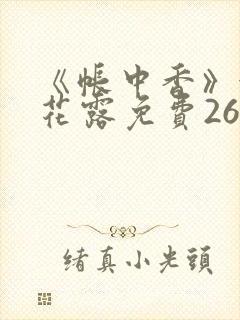 《帐中香》
花露免費26
绪真小光頭